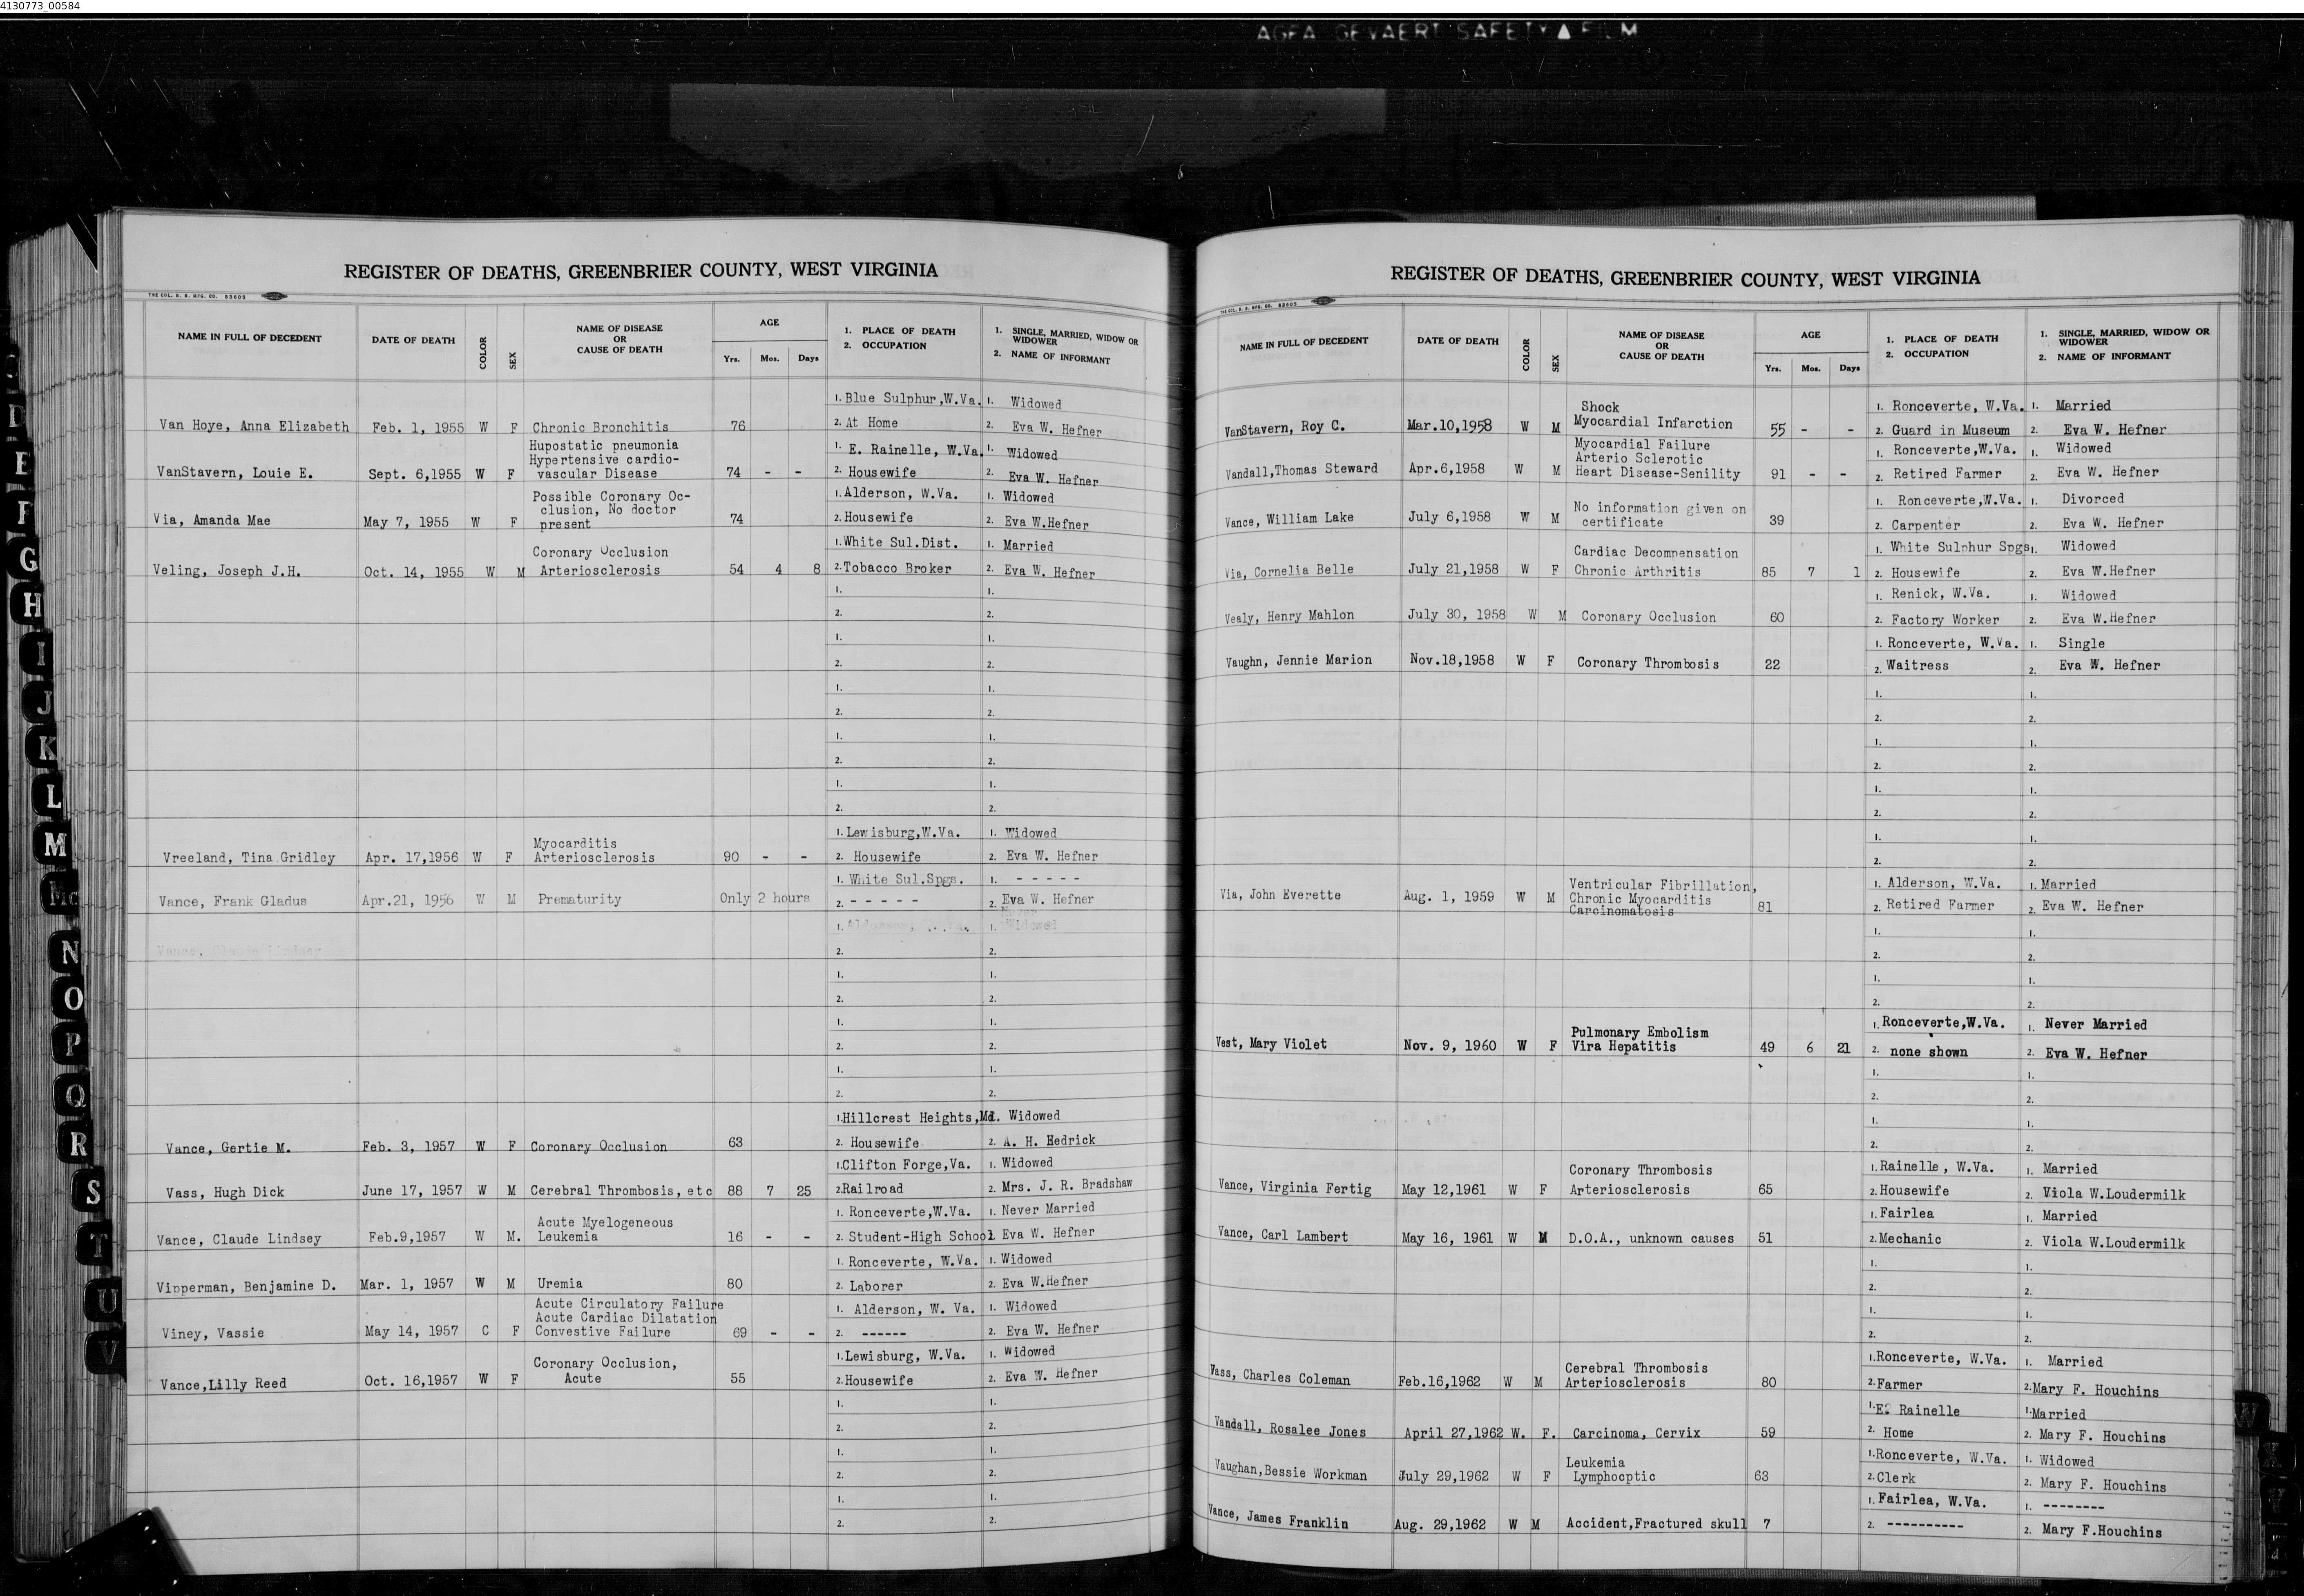 4130773_00584
AGFA GEVAERT SAFETY FILM
REGISTER OF DEATHS, GREENBRIER COUNTY, WEST VIRGINIA
THE COL. B. B. MFG. CO. 83605
NAME IN FULL OF DECEDENT DATE OF DEATH COLOR SEX NAME OF DISEASE OR CAUSE OF DEATH AGE Yrs. Mos. Days 1. PLACE OF DEATH 2. OCCUPATION 1. SINGLE, MARRIED, WIDOW OR WIDOWER 2. NAME OF INFORMANT
1. Blue Sulphur,W.Va. 1. Widowed
Van Hoye, Anna Elizabeth Feb. 1, 1955 W F Chronic Bronchitis 76 2. At Home 2. Eva W. Hefner
Hupostatic pneumonia
Hypertensive cardio- 1. E. Rainelle, W.Va. 1. Widowed
VanStavern, Louie E. Sept. 6,1955 W F vascular Disease 74 - - 2. Housewife 2. Eva W. Hefner
Possible Coronary Oc- 1. Alderson, W.Va. 1. Widowed
clusion, No doctor
Via, Amanda Mae May 7, 1955 W F present 74 2. Housewife 2. Eva W.Hefner
Coronary Occlusion 1. White Sul.Dist. 1. Married
Veling, Joseph J.H. Oct. 14, 1955 W M Arteriosclerosis 54 4 8 2. Tobacco Broker 2. Eva W. Hefner
1. 1.
2. 2.
1. 1.
2. 2.
1. 1.
2. 2.
1. 1.
2. 2.
1. 1.
2. 2.
Myocarditis 1. Lewisburg,W.Va. 1. Widowed
Vreeland, Tina Gridley Apr. 17,1956 W F Arteriosclerosis 90 - - 2. Housewife 2. Eva W. Hefner
1. White Sul.Spgs. 1. - - - - -
Vance, Frank Gladus Apr.21, 1956 W M Prematurity Only 2 hours 2. - - - - - 2. Eva W. Hefner
1. 1. Widowed
Vance, Claude Lindsey 2. 2.
1. 1.
2. 2.
1. 1.
2. 2.
1. 1.
2. 2.
1. Hillcrest Heights,Md. Widowed
Vance, Gertie M. Feb. 3, 1957 W F Coronary Occlusion 63 2. Housewife 2. A. H. Hedrick
1. Clifton Forge,Va. 1. Widowed
Vass, Hugh Dick June 17, 1957 W M Cerebral Thrombosis, etc 88 7 25 2. Railroad 2. Mrs. J. R. Bradshaw
Acute Myelogeneous 1. Ronceverte,W.Va. 1. Never Married
Vance, Claude Lindsey Feb.9,1957 W M. Leukemia 16 - - 2. Student-High School Eva W. Hefner
1. Ronceverte, W.Va. 1. Widowed
Vipperman, Benjamine D. Mar. 1, 1957 W M Uremia 80 2. Laborer 2. Eva W.Hefner
Acute Circulatory Failure 1. Alderson, W. Va. 1. Widowed
Acute Cardiac Dilatation
Viney, Vassie May 14, 1957 C F Convestive Failure 69 - - 2. ------ 2. Eva W. Hefner
Coronary Occlusion, 1. Lewisburg, W.Va. 1. Widowed
Vance,Lilly Reed Oct. 16,1957 W F Acute 55 2. Housewife 2. Eva W. Hefner
1. 1.
2. 2.
1. 1.
2. 2.
1. 1.
2. 2.
REGISTER OF DEATHS, GREENBRIER COUNTY, WEST VIRGINIA
THE COL. B. B. MFG. CO. 83605
NAME IN FULL OF DECEDENT DATE OF DEATH COLOR SEX NAME OF DISEASE OR CAUSE OF DEATH AGE Yrs. Mos. Days 1. PLACE OF DEATH 2. OCCUPATION 1. SINGLE, MARRIED, WIDOW OR WIDOWER 2. NAME OF INFORMANT
Shock 1. Ronceverte, W.Va. 1. Married
VanStavern, Roy C. Mar.10,1958 W M Myocardial Infarction 55 - - 2. Guard in Museum 2. Eva W. Hefner
Myocardial Failure
Arterio Sclerotic 1. Ronceverte,W.Va. 1. Widowed
Vandall,Thomas Steward Apr.6,1958 W M Heart Disease-Senility 91 - - 2. Retired Farmer 2. Eva W. Hefner
No information given on 1. Ronceverte,W.Va. 1. Divorced
Vance, William Lake July 6,1958 W M certificate 39 2. Carpenter 2. Eva W. Hefner
Cardiac Decompensation 1. White Sulphur Spgs 1. Widowed
Via, Cornelia Belle July 21,1958 W F Chronic Arthritis 85 7 1 2. Housewife 2. Eva W.Hefner
1. Renick, W.Va. 1. Widowed
Vealy, Henry Mahlon July 30, 1958 W M Coronary Occlusion 60 2. Factory Worker 2. Eva W.Hefner
1. Ronceverte, W.Va. 1. Single
Vaughn, Jennie Marion Nov.18,1958 W F Coronary Thrombosis 22 2. Waitress 2. Eva W. Hefner
1. 1.
2. 2.
1. 1.
2. 2.
1. 1.
2. 2.
1. 1.
2. 2.
Ventricular Fibrillation, 1. Alderson, W.Va. 1. Married
Via, John Everette Aug. 1, 1959 W M Chronic Myocarditis 2. Retired Farmer 2. Eva W. Hefner
Carcinomatosis 81
1. 1.
2. 2.
1. 1.
2. 2.
Pulmonary Embolism 1. Ronceverte,W.Va. 1. Never Married
Vest, Mary Violet Nov. 9, 1960 W F Vira Hepatitis 49 6 21 2. none shown 2. Eva W. Hefner
1. 1.
2. 2.
1. 1.
2. 2.
Coronary Thrombosis 1. Rainelle, W.Va. 1. Married
Vance, Virginia Fertig May 12,1961 W F Arteriosclerosis 65 2. Housewife 2. Viola W.Loudermilk
1. Fairlea 1. Married
Vance, Carl Lambert May 16, 1961 W M D.O.A., unknown causes 51 2. Mechanic 2. Viola W.Loudermilk
1. 1.
2. 2.
1. 1.
2. 2.
Cerebral Thrombosis 1. Ronceverte, W.Va. 1. Married
Vass, Charles Coleman Feb.16,1962 W M Arteriosclerosis 80 2. Farmer 2. Mary F. Houchins
1. E. Rainelle 1. Married
Vandall, Rosalee Jones April 27,1962 W. F. Carcinoma, Cervix 59 2. Home 2. Mary F. Houchins
Leukemia 1. Ronceverte, W.Va. 1. Widowed
Vaughan,Bessie Workman July 29,1962 W F Lymphocptic 63 2. Clerk 2. Mary F. Houchins
1. Fairlea, W.Va. 1. --------
Vance, James Franklin Aug. 29,1962 W M Accident,Fractured skull 7 2. ---------- 2. Mary F.Houchins
D
E
F
G
H
I
J
K
L
M
Mc
N
O
P
Q
R
S
T
U
V
W